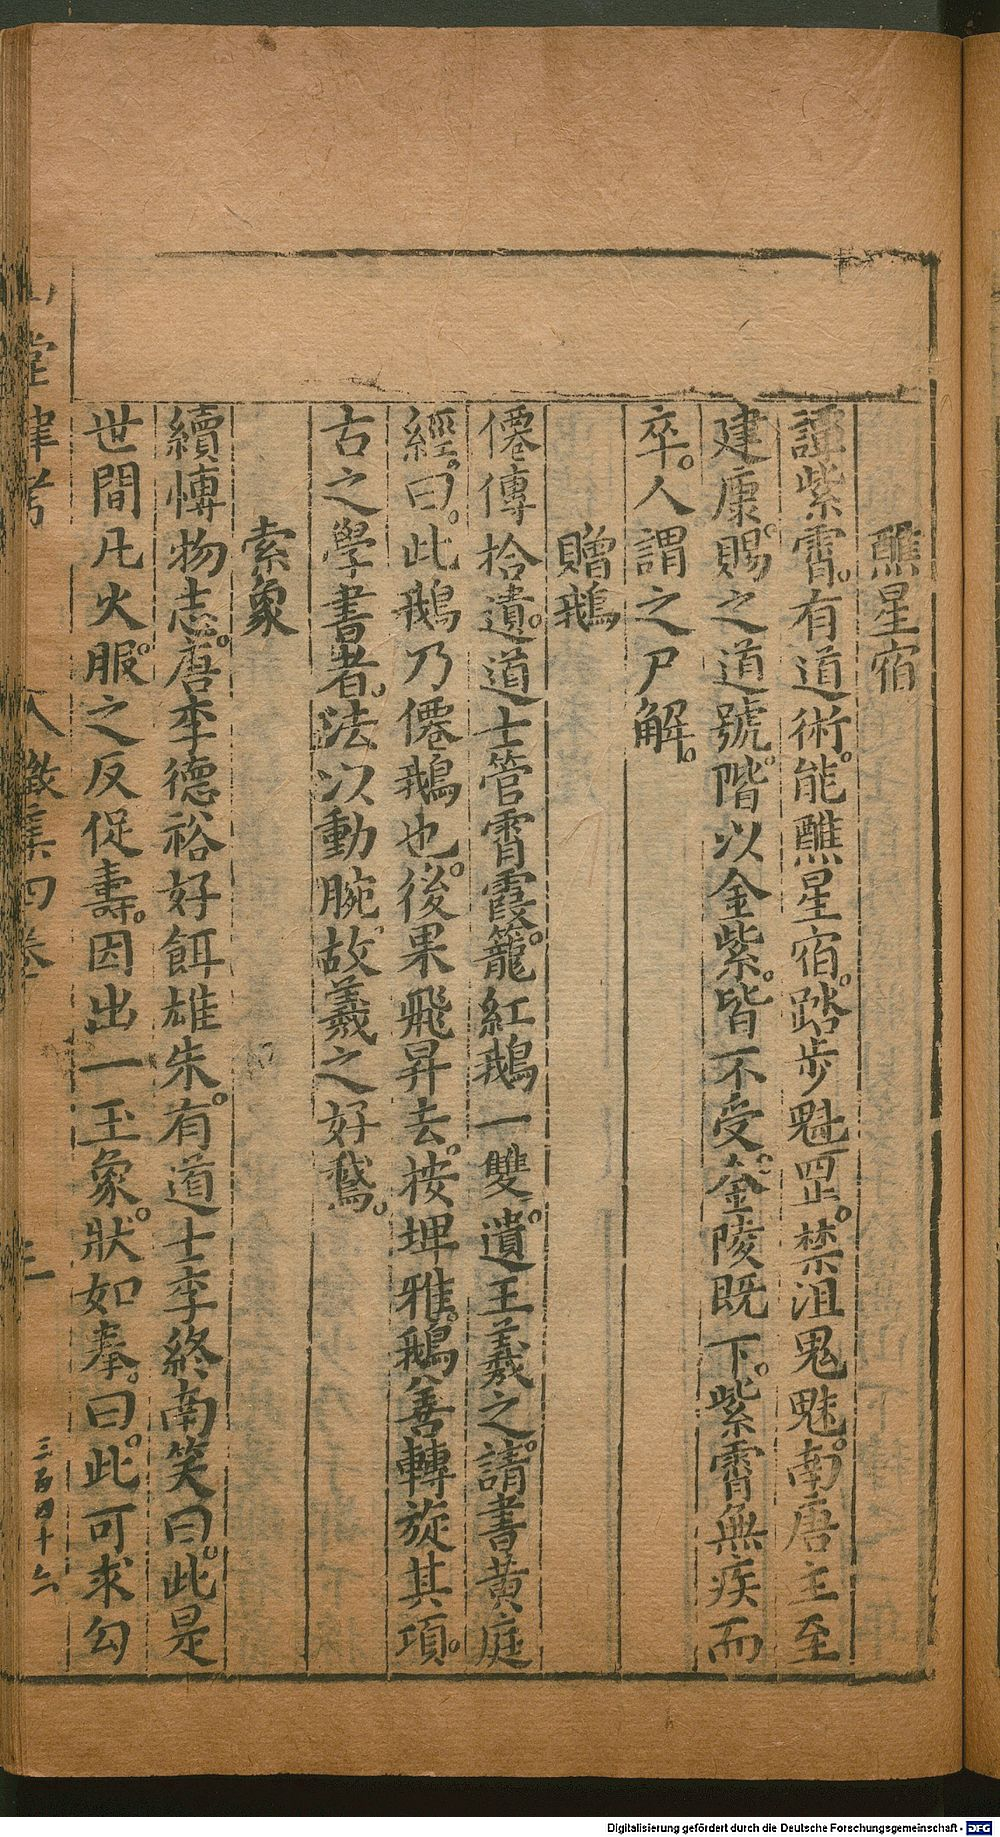 醮星宿
譚紫霄。有道術。能醮星宿。踏步魁罡。禁沮鬼魅。南唐主至
建康。賜之道號。階以金紫。皆不受。金陵既下。紫霄無疾而
卒。人謂之尸解。
贈鵝
僊傳拾遺。道士管霄霞。籠紅鵝一雙。遺王羲之。請書黄庭
經。曰。此鵝乃僊鵝也。後果飛昇去。按埤雅。鵝善轉旋其項。
古之學書者。法以動腕。故羲之好鵞。
索象
續愽物志。唐李德裕好餌雄朱。有道士李終南笑曰。此是
世間凡火。服之反促壽。因出一玉象。狀如拳。曰。此可求勾
山堂肆考
徵集四卷
三百四十六
Digitalisierung gefördert durch die Deutsche Forschungsgemeinschaft - DFG